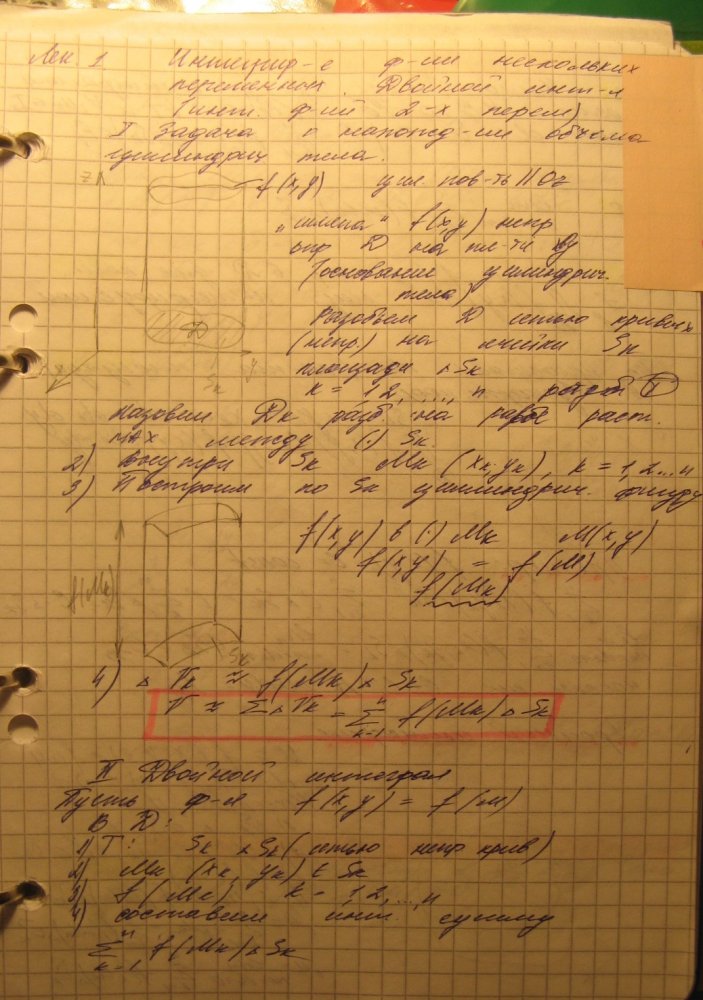 Лек. 1 Интегрир-е ф-ии нескольких
переменных. Двойной инт-л
(инт. ф-ий 2-х перем)
I Задача о нахожд-ии объёма
цилиндрич тела.
z f(x,y) цил. пов-ть || Oz
"шляпа" f(x,y) непр
огр D на пл-ти xy
(основание цилиндрич.
тела)
D
Разобьем D сетью кривых
x y
(непр.) на ячейки Sk
Sk
площади △Sk
k = 1,2,...,n T
назовем Dк раст.
max между (·) Sk.
2) Внутри Sk Mk (xk, yk), k = 1,2...n
3) Построим по Sk цилиндрич. фигуру
f(x,y) в (·) Mk M(x,y)
f(x,y) = f(M)
f(Mk)
f(Mk)
Sk
4) △Vk ≈ f(Mk)△Sk
V ≈ Σ△Vk = Σ n k=1 f(Mk)△Sk
II Двойной интеграл
Пусть ф-я f(x,y) = f(M)
в D:
1) T: Sk △Sk (сетью непр крив)
2) Mk (xk, yk) ∈ Sk
3) f(Mk) k = 1,2,...,n
4) составим инт. сумму
Σ n k=1 f(Mk)△Sk